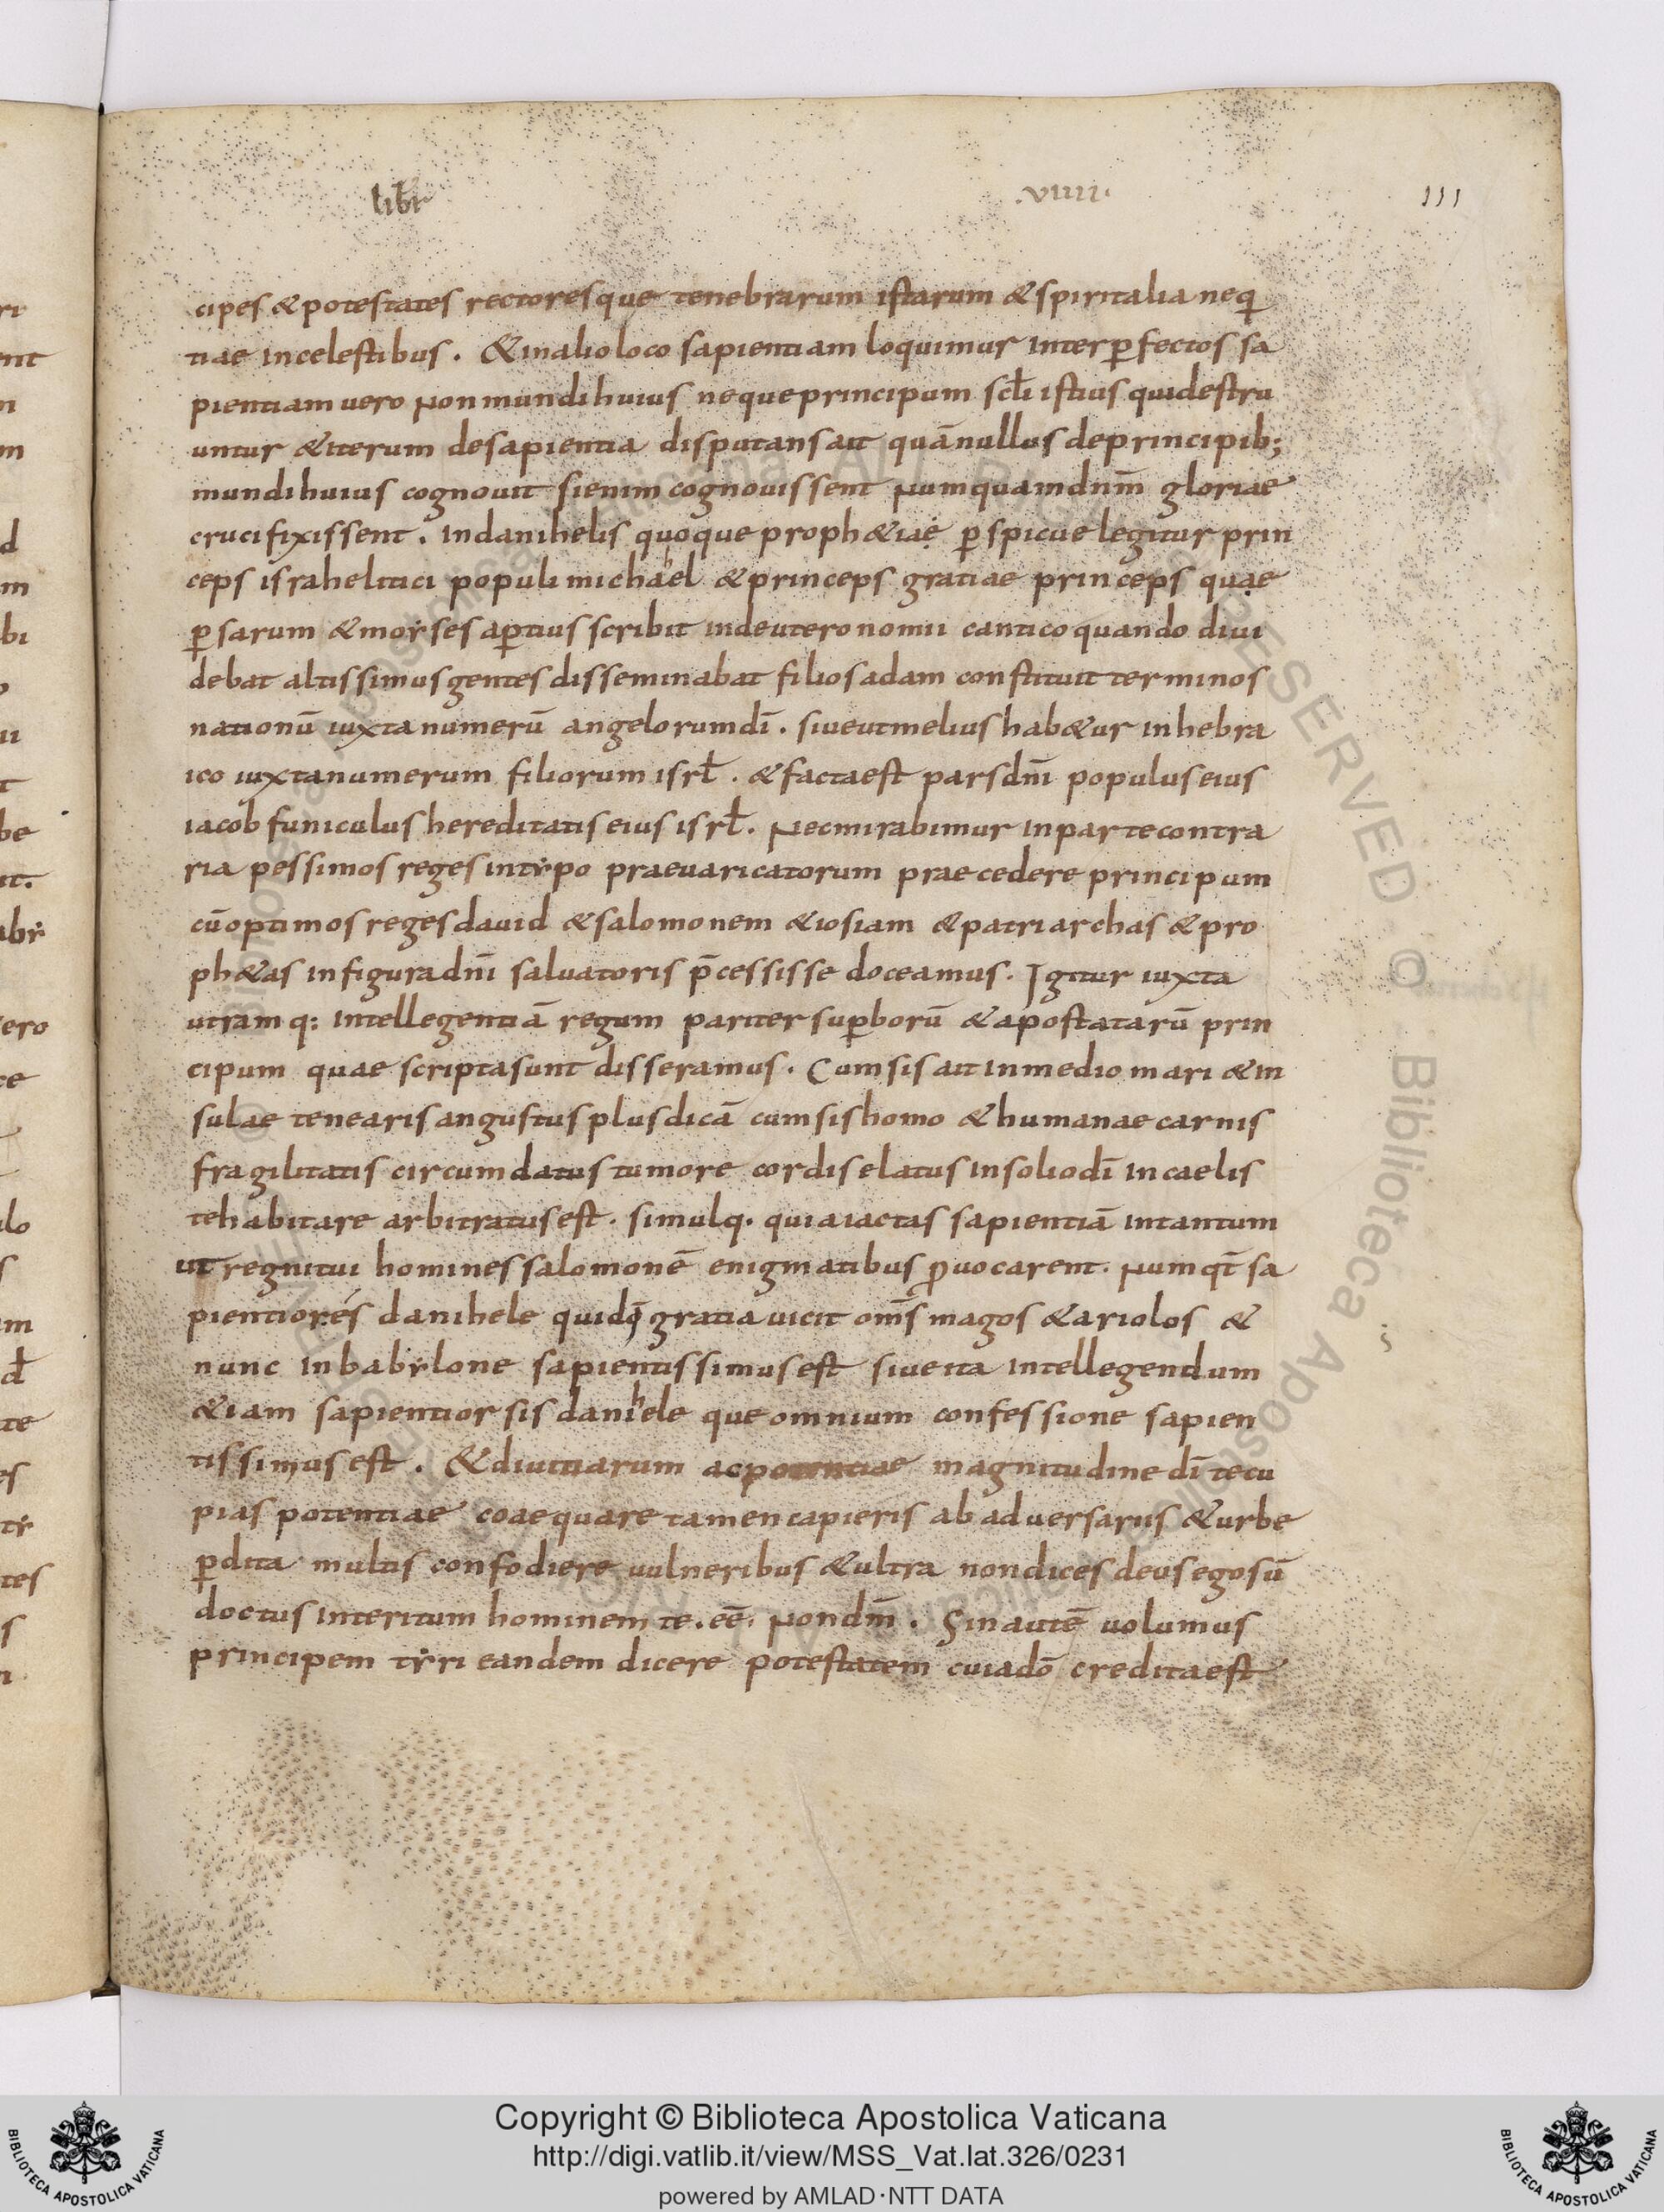 libr̄ .VIIII. 111
cipes & potestates rectoresque tenebrarum istarum & spiritalia neq
tiae in celestibus . & in alio loco sapientiam loquimur inter pfectos sa
pientiam uero non mundi huius neque principum scłi istius qui destru
untur & iterum de sapientia disputans ait quā nullus de principib;
mundi huius cognouit si enim cognouissent numquam dnm̄ gloriae
crucifixissent . in danihelis quoque proph&iae p̱spicue legitur prin
ceps israhelitici populi michahel & princeps gratiae princeps quae
p̱sarum & moẏses ap̱tius scribit in deuteronomii cantico quando diui
debat altissimus gentes disseminabat filios adam constituit terminos
nationū iuxta numerū angelorum dī . siue ut melius hab&ur in hebra
ico iuxta numerum filiorum isrł . & facta est pars dnī populus eius
iacob funiculus hereditatis eius isrł . nec mirabimur in parte contra
ria pessimos reges in tẏpo praeuaricatorum praecedere principum
cū optimos reges dauid & salomonem & iosiam & patriarchas & pro
ph&as in figura dnī saluatoris p̄cessisse doceamus . Igitur iuxta
utramq: intellegentiā regum pariter sup̱borū & apostatarū prin
cipum quae scripta sunt disseramus . Cum sis ait in medio mari & in
sulae tenearis angustus plus dicā cum sis homo & humanae carnis
fragilitatis circumdatus tumore cordis elatus in solio dī in caelis
te habitare arbitratus est . simulq. quia iactas sapientiā in tantum
ut regni tui homines salomonē enigmatibus ꝓuocarent . numqt̄ sa
pientiores danihele qui dq̄ gratia uicit oms̄ magos & ariolos &
nunc in babẏlone sapientissimus est siue ita intellegendum
&iam sapientior sis danihele que omnium confessione sapien
tissimus est . & diuitiarum ac potentiae magnitudine dī te cu
pias potentiae coaequare tamen capieris ab aduersariis & urbe
p̱dita multis confodiere uulneribus & ultra non dices deus ego sū
doctus interitum hominem te . eē . non dm̄ . Sin autē uolumus
principem tẏri eandem dicere potestatem cui a dō credita est
Copyright © Biblioteca Apostolica Vaticana
http://digi.vatlib.it/view/MSS_Vat.lat.326/0231
powered by AMLAD·NTT DATA
BIBLIOTECA APOSTOLICA VATICANA
BIBLIOTECA APOSTOLICA VATICANA